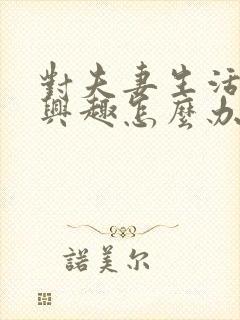 對夫妻生活
興趣怎麼办
諾美尔